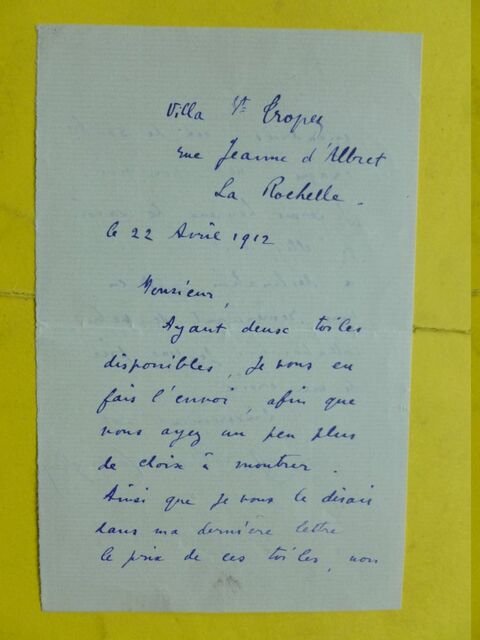 Villa St Tropez
rue Jeanne d'Albret
La Rochelle.
le 22 Avril 1912
Monsieur,
Ayant deux toiles
disponibles, je vous en
fais l'envoi, afin que
vous ayez un peu plus
de choix à montrer.
Ainsi que je vous le disais
dans ma dernière lettre
le prix de ces toiles, non